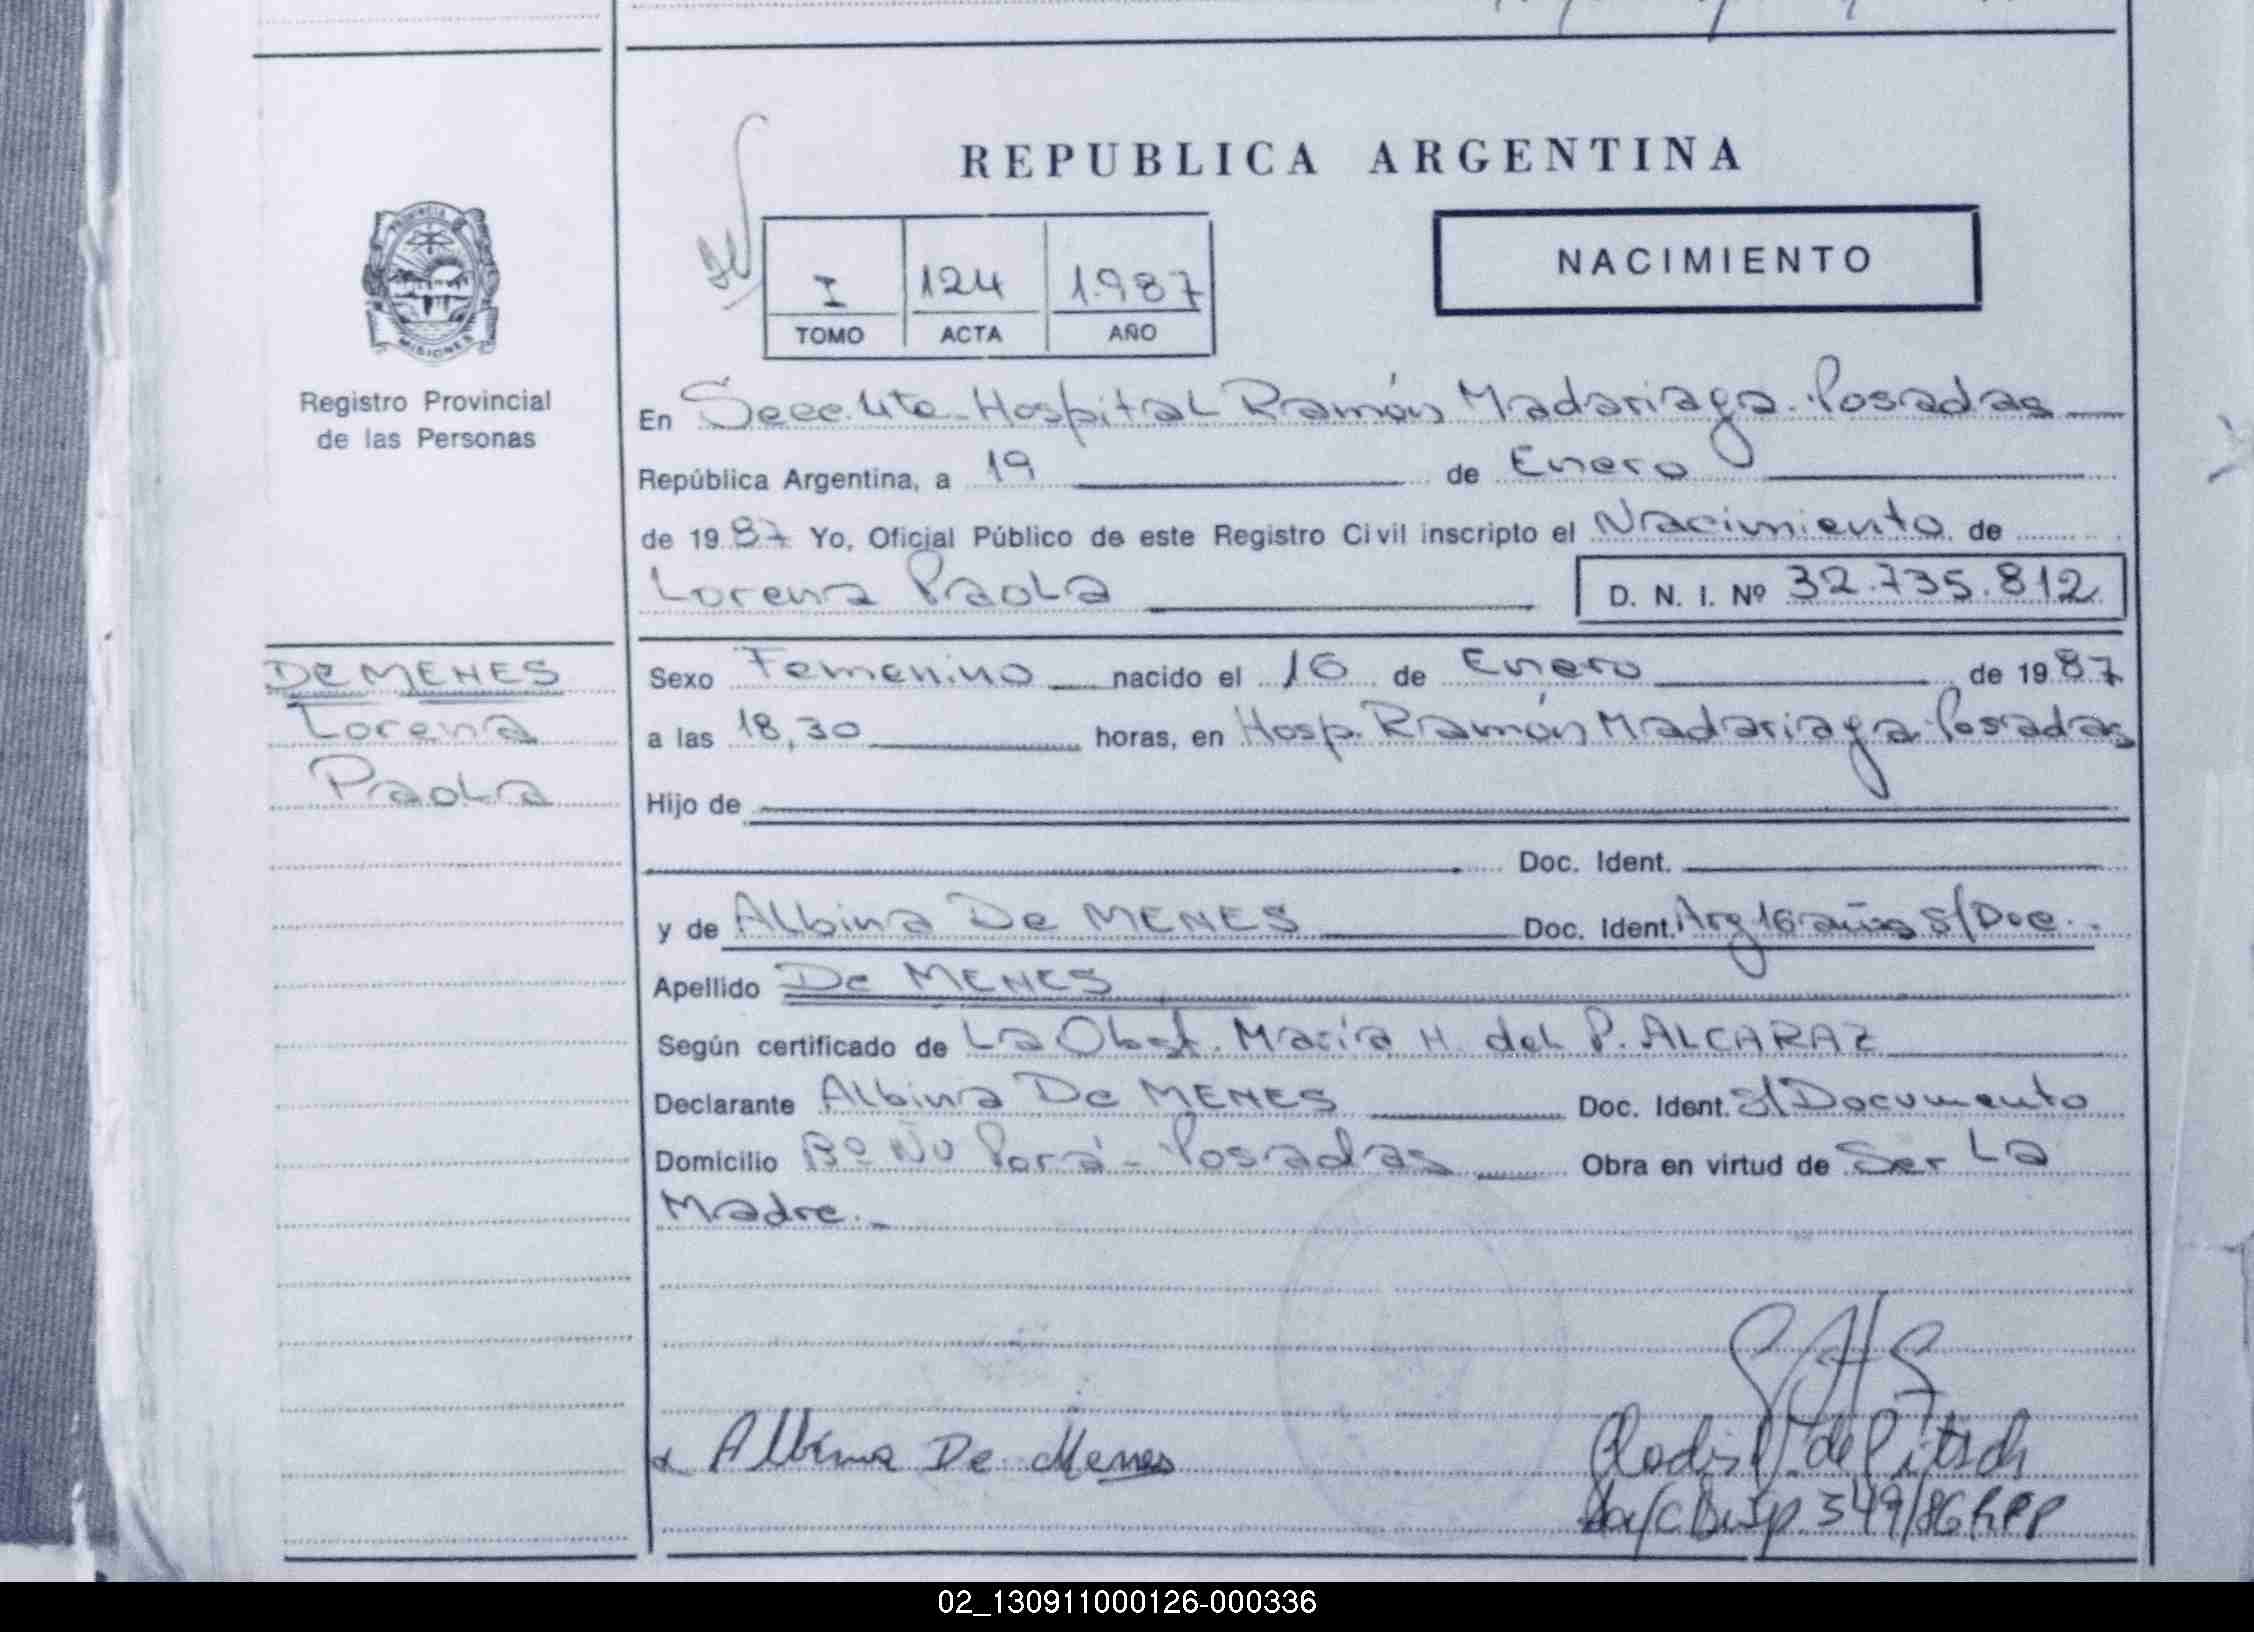 REPUBLICA ARGENTINA
PROVINCIA DE
MISIONES
Registro Provincial
de las Personas
I 124 1.987
TOMO ACTA AÑO
NACIMIENTO
En Secc. 4ta - Hospital Ramón Madariaga - Posadas
República Argentina, a 19 de Enero
de 1987 Yo, Oficial Público de este Registro Civil inscripto el Nacimiento de
Lorena Paola D. N. I. Nº 32.735.812
DE MENES
Lorena
Paola
Sexo Femenino nacido el 16 de Enero de 1987
a las 18,30 horas, en Hosp. Ramón Madariaga - Posadas
Hijo de
Doc. Ident.
y de Albina De MENES Doc. Ident. Arg 16 años S/Doc.
Apellido De MENES
Según certificado de La Obst. María H. del P. ALCARAZ
Declarante Albina De MENES Doc. Ident. S/Documento
Domicilio Bº Ñu Porá - Posadas Obra en virtud de Ser La
Madre.-
Albina De Menes
de Pitsch
Disp. 349/86 RPP
02_130911000126-000336